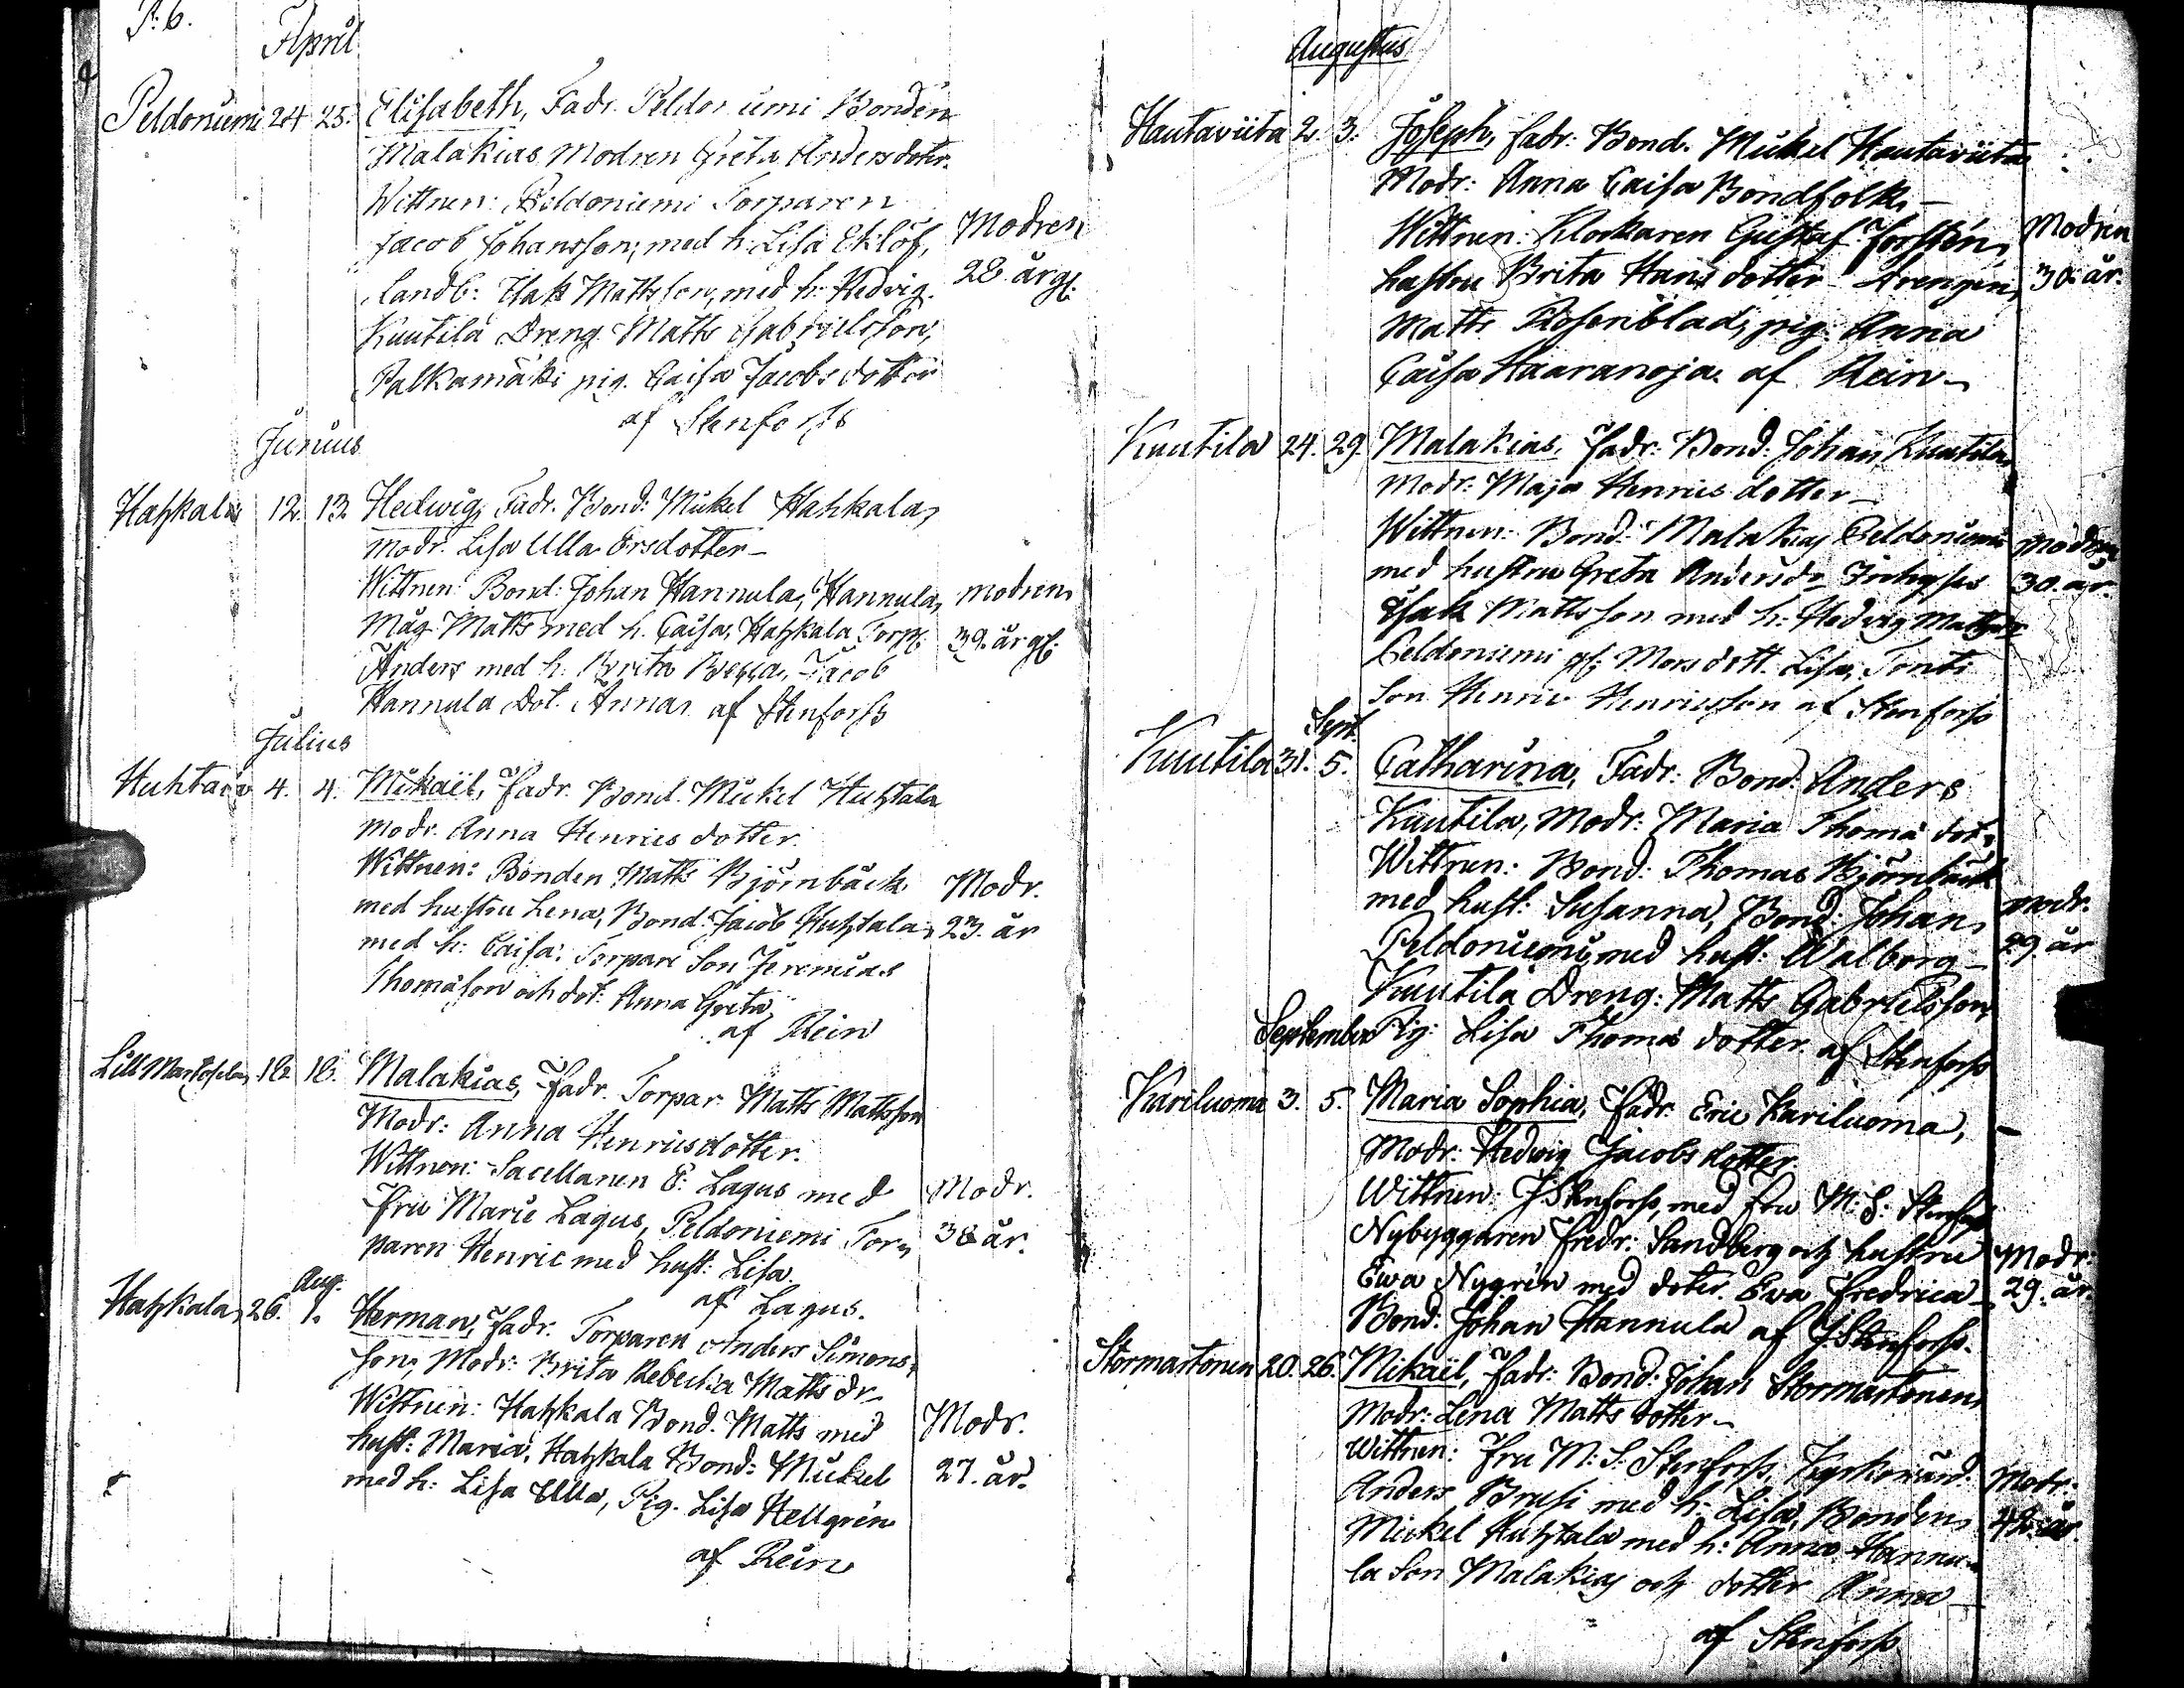 P: 6.
April
Peldoniemi 24 25. Elisabeth, Fadr. Peldoniemi Bonden
Malakias Modren Greta Andersdoter.
Wittnen: Peldoniemi Torparen
Jacob Johansson, med h: Lisa Eklöf,
landb: Isak Mattsson, med h: Hedvig.
Kuutila Dreng Matts Gabrielsson,
Palkamäki pig. Caisa Jacobsdotter
af Stenforss
Modren
28 år gl.
Junius
Hahkala 12. 13. Hedwig, Fadr. Bond: Mickel Hahkala,
Modr. Lisa Ulla Ersdotter_
Wittnen: Bond: Johan Hannula, Hannula,
Måg Matts med h. Caisa, Hahkala Torp:
Anders med h. Brita Jacob
Hannula Dot. Anna. af Stenforss
modren
39. år gl.
Julius
Huhtala 4. 4. Mikaël, Fadr. Bond. Mickel Huhtala
Modr. Anna Henricsdotter.
Wittnen: Bonden Matts Björnback
med hustru Lena, Bond: Jacob Huhtala,
med h: Caisa, Torpare Son Jeremias
Thomason och dot: Anna Greta
af Rein
Modr.
23. år
Lill Martosela, 18. 18. Malakias, Fadr. Torpar. Matts Mattsson
Modr: Anna Henricsdotter.
Wittnen: Sacellanen E: Lagus med
Fru Marie Lagus, Peldoniemi Tor,
paren Henric med hust: Lisa.
af Lagus.
Modr.
38 år.
Aug.
Hahkala, 26. 1. Herman, Fadr. Torparen Anders Simons,
son, Modr: Brita Rebecka Matts dr_
Wittnen: Hahkala Bond. Matts med
hust: Maria, Hahkala Bond: Mickel
med h: Lisa Ulla, Pig. Lisa Hellgrén
af Rein
Modr.
27. år.
Augustus
Hautaviita 2. 3. Joseph, Fadr: Bond. Mickel Hautaviita
Modr: Anna Caisa Bondfolk,_
Wittnen: Klockaren Gustaf Forstén,
hustru Brita Hans dotter_ Drengen,
Matts Rosenblad, pig: Anna
Caisa Haaranoja. af Rein_
Modren
38 år.
Kuutila 24. 29. Malakias, Fadr: Bond: Johan Kuutila,
Modr: Maja Henrics dotter_
Wittnen: Bond: Malakias Peldoniemi
med hustru Greta Andersdr
Isak Mattsson med h: Hedvig
Peldoniemi Mors dott. Lisa,
Son Henric Henricsson af Stenforss
Modren
30. år.
Sept.
Kuutila 31. 5. Catharina, Fadr: Bond: Anders
Kuutila, Modr: Maria Thomä dot,
Wittnen: Bond: Thomas Björnback
med hust: Susanna, Bond: Johan,
Peldoniemi, med hust: Walborg_
Kuutila Dreng: Matts Gabrielsson,
Pig: Lisa Thomä dotter. af Stenforss
modr.
29. år
September
Kariluoma 3. 5. Maria Sophia, Fadr: Eric Kariluoma,
Modr: Hedwig Jacobs dotter.
Wittnen: J Stenforss, med fru M: S: Stenforss
Nybyggaren Fredr: Sandberg och hustru
Ewa Nygrén med doter. Ewa Fredrica_
Bond: Johan Hannula af J: Stenforss.
Modr:
29. år.
Stormartonen 20. 26. Mikaël, Fadr: Bond: Johan Stormartonen,
Modr: Lena Matts dotter_
Wittnen: Fru M: S: Stenforss, Kyrkowärd.
Anders Brusi med h: Lisa, Bonden,
Mickel Huhtala med h: Anna Hannu,
la Son Malakias och dotter Anna_
af Stenforss
Modr:
42. år.